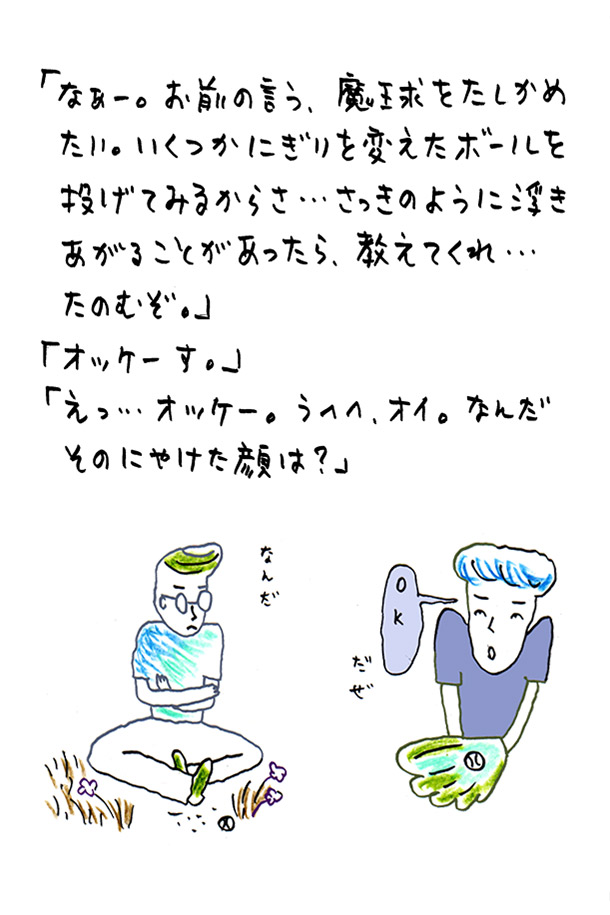 「なぁー。お前の言う、魔球をたしかめ
たい。いくつかにぎりを変えたボールを
投げてみるからさ…さっきのように浮き
あがることがあったら、教えてくれ…
たのむぞ。」
「オッケーす。」
「えっ…オッケー。うへへ、オイ。なんだ
そのにやけた顔は？」
なんだ
OK
だぜ